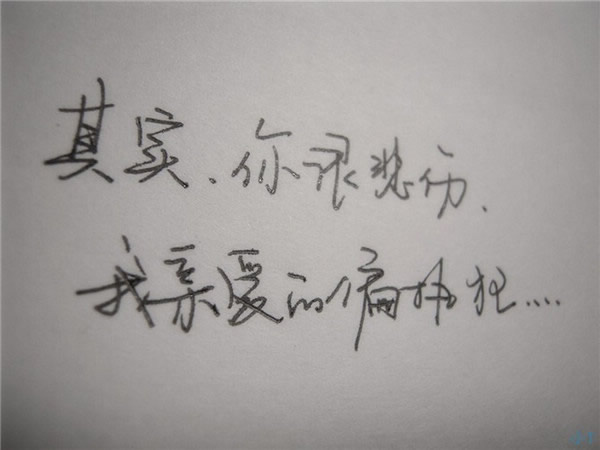 其实、你很悲伤、
我亲爱的偏执狂....